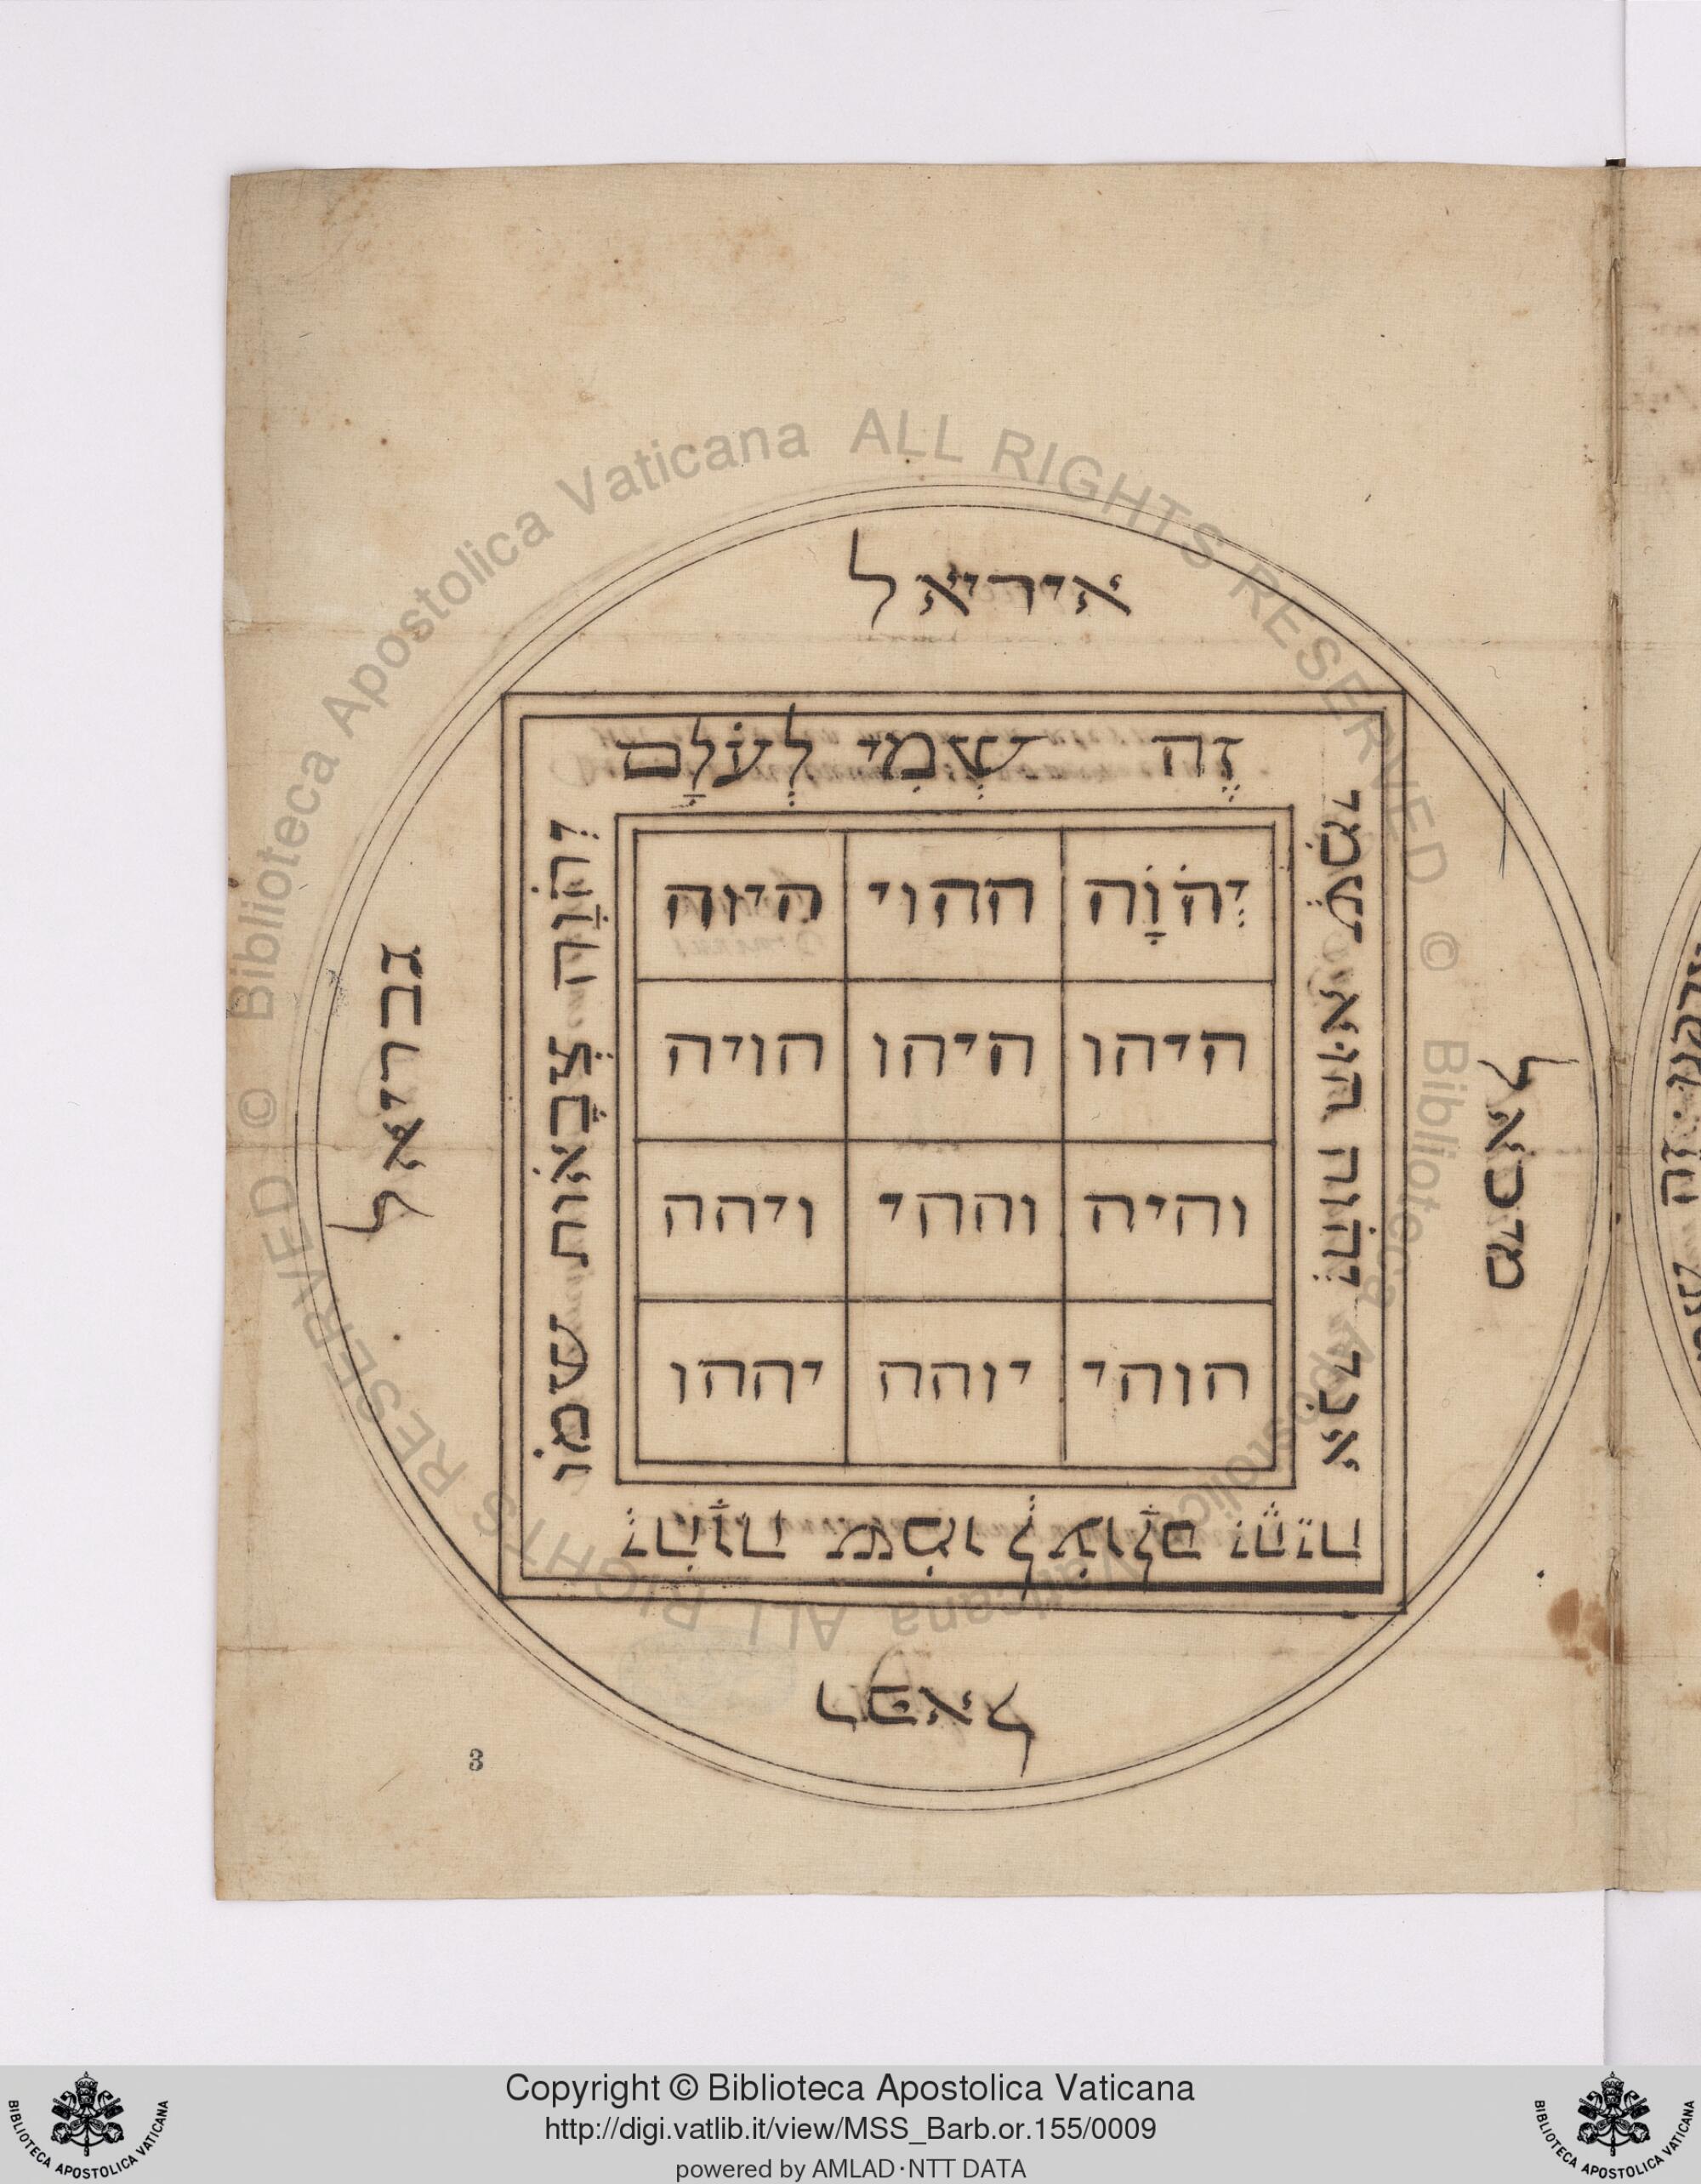 איריאל
זֶה שְמִי לְעֹלָם
אֲנִי יְהֹוָה הוּא שְׁמִי
יְהֹוָה שמו לְעוֹלָם יִהְיֶה
יְהֹוָה צְבָאוֹת שמוֹ
יְהֹוָה ההוי היוה
היהו היהו הויה
והיה וההי ויהה
הוהי יוהה יההו
מיכאל
רפאל
גבריאל
3
© Biblioteca Apostolica Vaticana ALL RIGHTS RESERVED © Biblioteca Apostolica Vaticana ALL RIGHTS RESERVED
Copyright © Biblioteca Apostolica Vaticana
http://digi.vatlib.it/view/MSS_Barb.or.155/0009
powered by AMLAD·NTT DATA
BIBLIOTECA APOSTOLICA VATICANA
BIBLIOTECA APOSTOLICA VATICANA